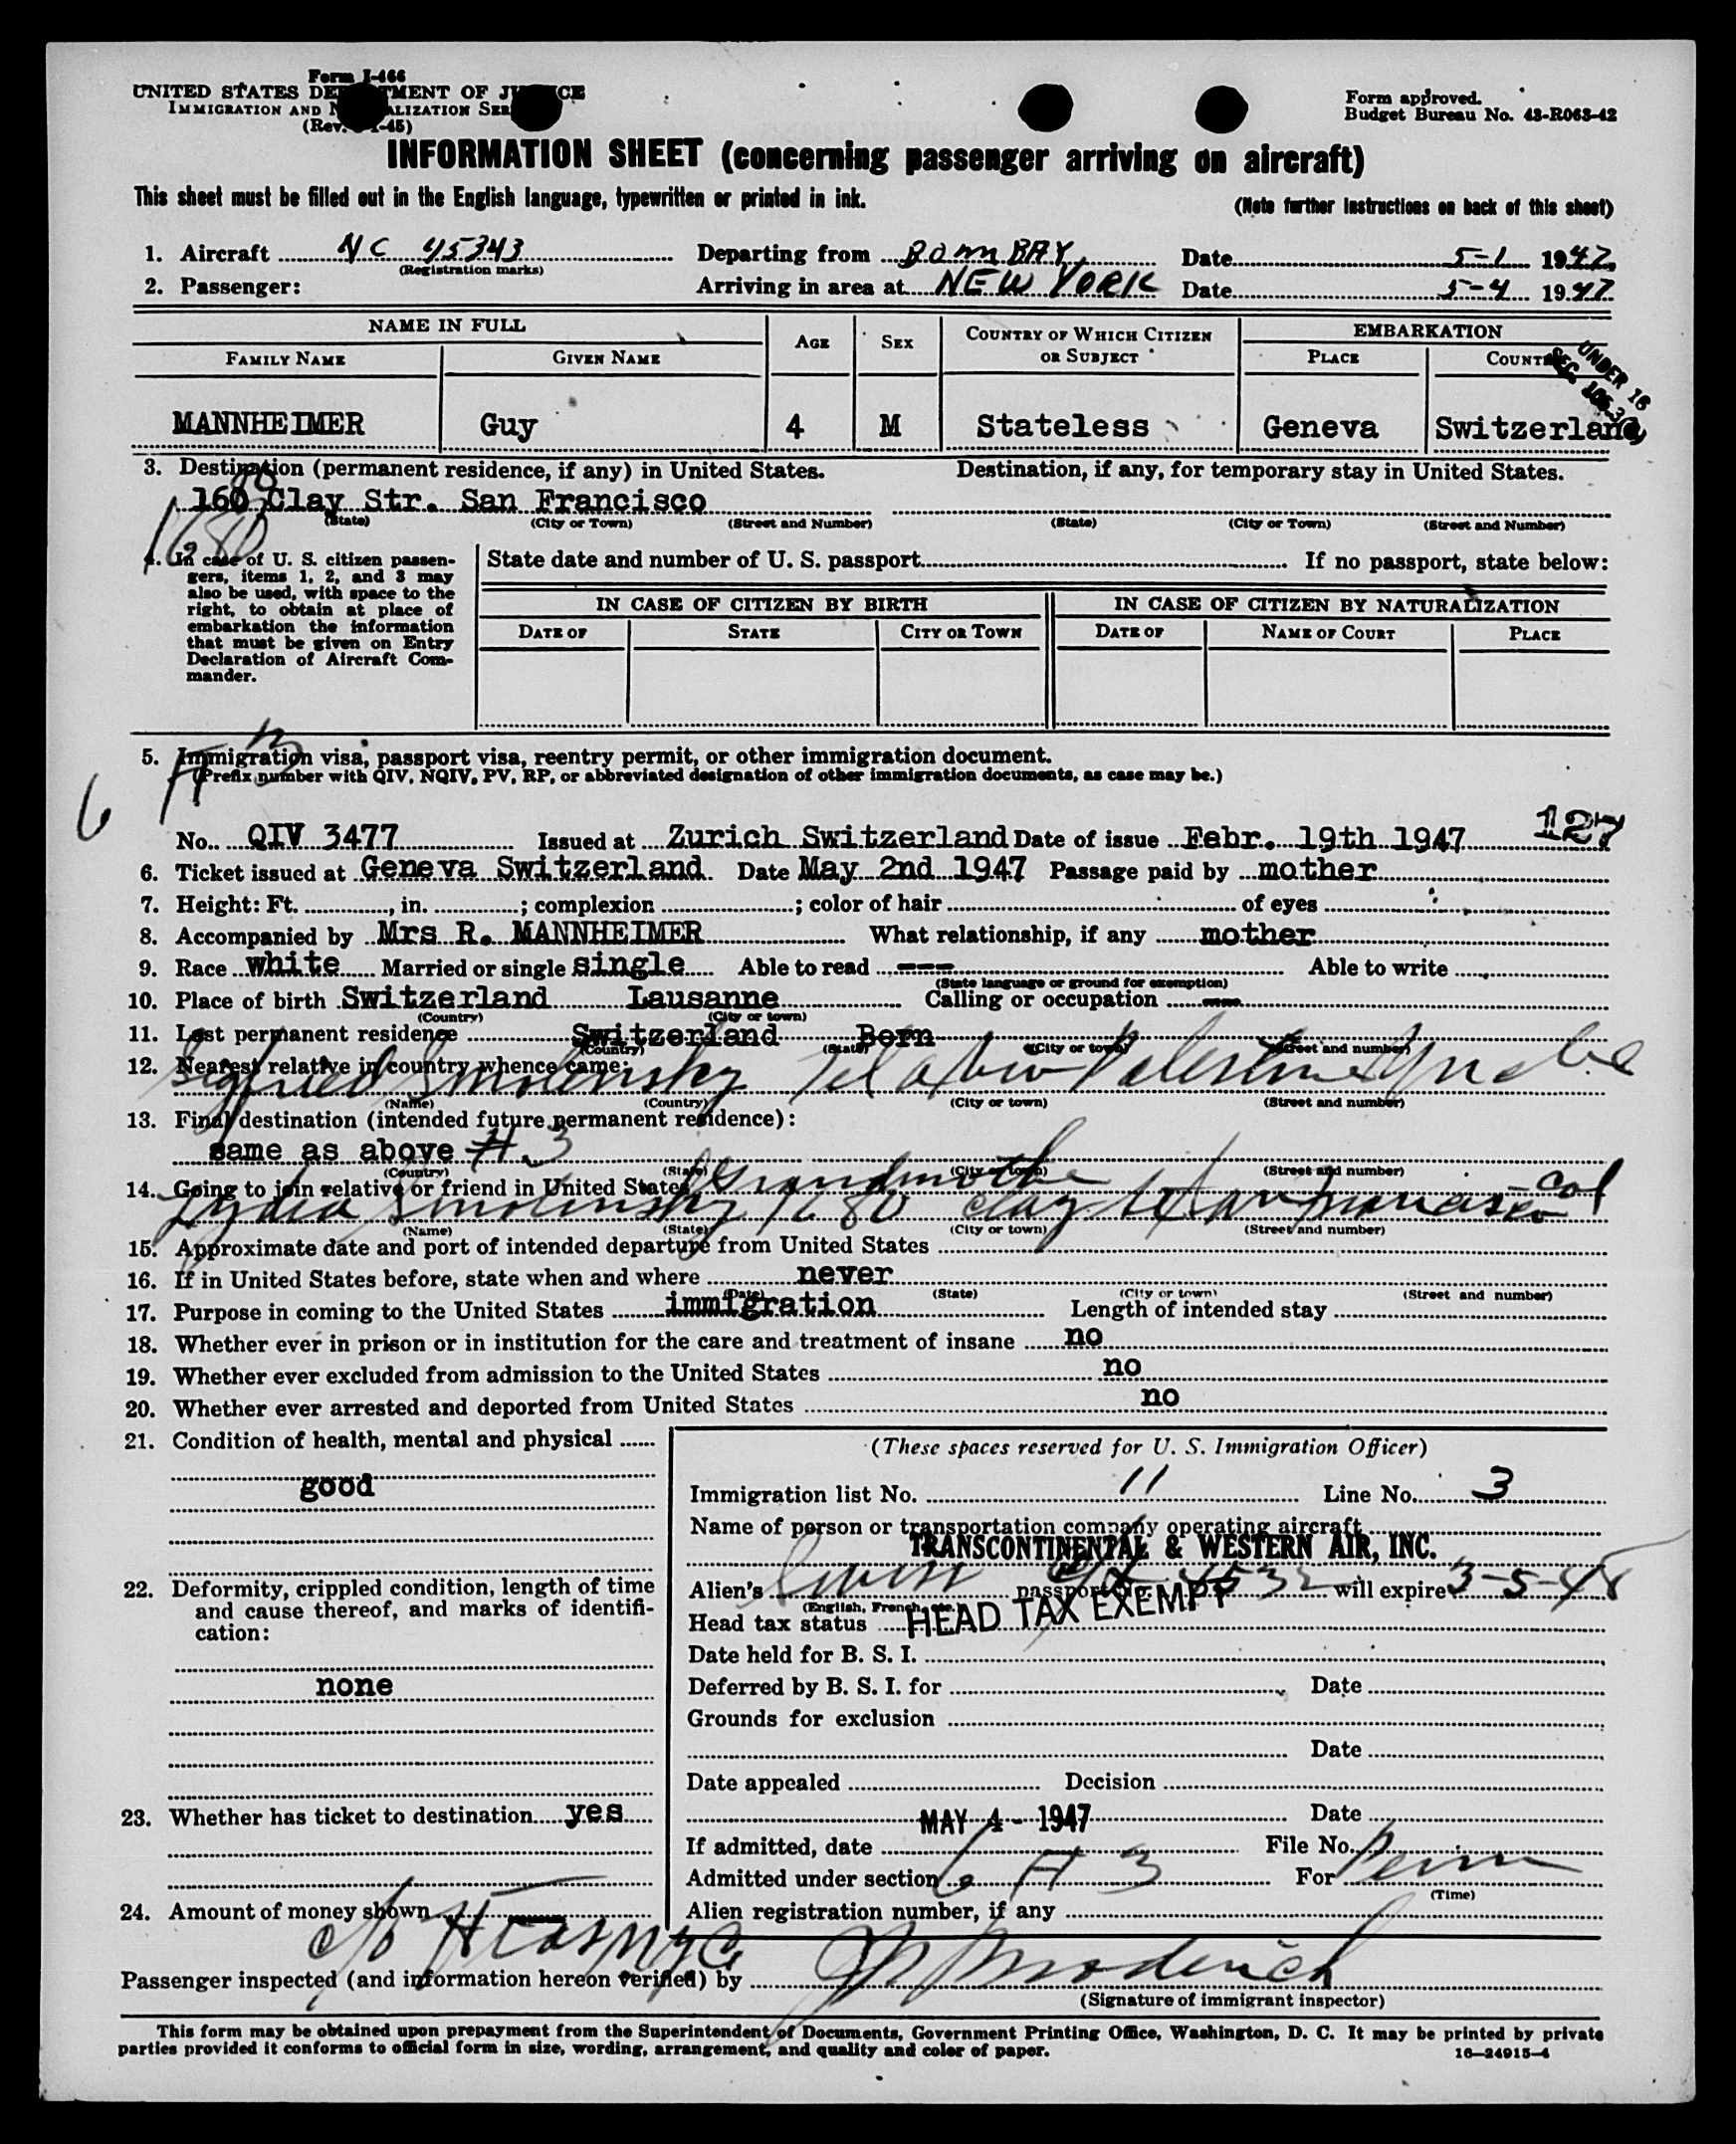 Form I-466
UNITED STATES DEPARTMENT OF JUSTICE
IMMIGRATION AND NATURALIZATION SERVICE
(Rev. -1-45)
Form approved.
Budget Bureau No. 43-R063-42
INFORMATION SHEET (concerning passenger arriving on aircraft)
This sheet must be filled out in the English language, typewritten or printed in ink.
(Note further instructions on back of this sheet)
1. Aircraft NC 45343 Departing from BOMBAY, Date 5-1 1947,
(Registration marks)
2. Passenger: Arriving in area at NEW YORK Date 5-4 1947
NAME IN FULL AGE SEX COUNTRY OF WHICH CITIZEN OR SUBJECT EMBARKATION
FAMILY NAME GIVEN NAME PLACE COUNTRY
UNDER 16
SEC.
MANNHEIMER Guy 4 M Stateless Geneva Switzerland
3. Destination (permanent residence, if any) in United States. Destination, if any, for temporary stay in United States.
160 Clay Str. San Francisco
1680
(State) (City or Town) (Street and Number) (State) (City or Town) (Street and Number)
4. In case of U. S. citizen passengers, items 1, 2, and 3 may also be used, with space to the right, to obtain at place of embarkation the information that must be given on Entry Declaration of Aircraft Commander.
State date and number of U. S. passport If no passport, state below:
IN CASE OF CITIZEN BY BIRTH IN CASE OF CITIZEN BY NATURALIZATION
DATE OF STATE CITY OR TOWN DATE OF NAME OF COURT PLACE
5. Immigration visa, passport visa, reentry permit, or other immigration document.
(Prefix number with QIV, NQIV, PV, RP, or abbreviated designation of other immigration documents, as case may be.)
6
127
No. QIV 3477 Issued at Zurich Switzerland Date of issue Febr. 19th 1947
6. Ticket issued at Geneva Switzerland Date May 2nd 1947 Passage paid by mother
7. Height: Ft. , in. ; complexion ; color of hair of eyes
8. Accompanied by Mrs R. MANNHEIMER What relationship, if any mother
9. Race white Married or single single Able to read --- Able to write
(State language or ground for exemption)
10. Place of birth Switzerland Lausanne Calling or occupation ---
(Country) (City or town)
11. Last permanent residence Switzerland Bern
(Country) (State) (City or town) (Street and number)
12. Nearest relative in country whence came:
Siegfried Smolensky Tel Aviv Palestine
(Name) (Country) (City or town) (Street and number)
13. Final destination (intended future permanent residence):
same as above # 3
(Country) (State) (City or town) (Street and number)
14. Going to join relative or friend in United States Grandmother
Lydia Smolensky 1680 Clay St San Francisco Cal
(Name) (State) (City or town) (Street and number)
15. Approximate date and port of intended departure from United States
16. If in United States before, state when and where never
(Date) (State) (City or town) (Street and number)
17. Purpose in coming to the United States immigration Length of intended stay
18. Whether ever in prison or in institution for the care and treatment of insane no
19. Whether ever excluded from admission to the United States no
20. Whether ever arrested and deported from United States no
21. Condition of health, mental and physical
good
22. Deformity, crippled condition, length of time and cause thereof, and marks of identification:
none
23. Whether has ticket to destination yes
24. Amount of money shown
(These spaces reserved for U. S. Immigration Officer)
Immigration list No. 11 Line No. 3
Name of person or transportation company operating aircraft
TRANSCONTINENTAL & WESTERN AIR, INC.
Alien's Swiss passport No. will expire 3-5-48
(English, French, etc.)
Head tax status HEAD TAX EXEMPT
Date held for B. S. I.
Deferred by B. S. I. for Date
Grounds for exclusion
Date
Date appealed Decision
Date
MAY 4 - 1947
If admitted, date File No.
Admitted under section 6 A 3 For Perm
(Time)
Alien registration number, if any
Passenger inspected (and information hereon verified) by
(Signature of immigrant inspector)
This form may be obtained upon prepayment from the Superintendent of Documents, Government Printing Office, Washington, D. C. It may be printed by private
parties provided it conforms to official form in size, wording, arrangement, and quality and color of paper.
16—24915-4